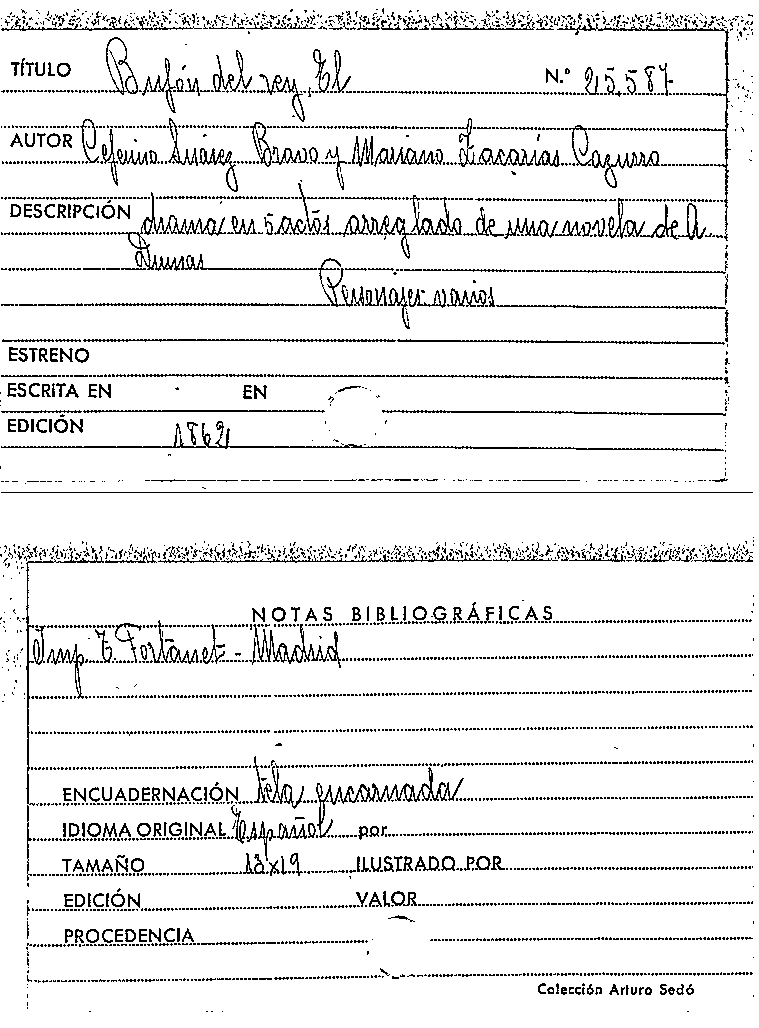 TÍTULO Bufón del rey, El N.º 25.587
AUTOR Ceferino Suárez Bravo y Mariano Zacarías Cazurro
DESCRIPCIÓN drama en 5 actos arreglado de una novela de A.
Dumas
Personajes varios
ESTRENO
ESCRITA EN EN
EDICIÓN 1862
NOTAS BIBLIOGRÁFICAS
Imp T. Fortanet - Madrid
ENCUADERNACIÓN tela encarnada
IDIOMA ORIGINAL Español por
TAMAÑO 13x19 ILUSTRADO POR
EDICIÓN VALOR
PROCEDENCIA
Colección Arturo Sedó